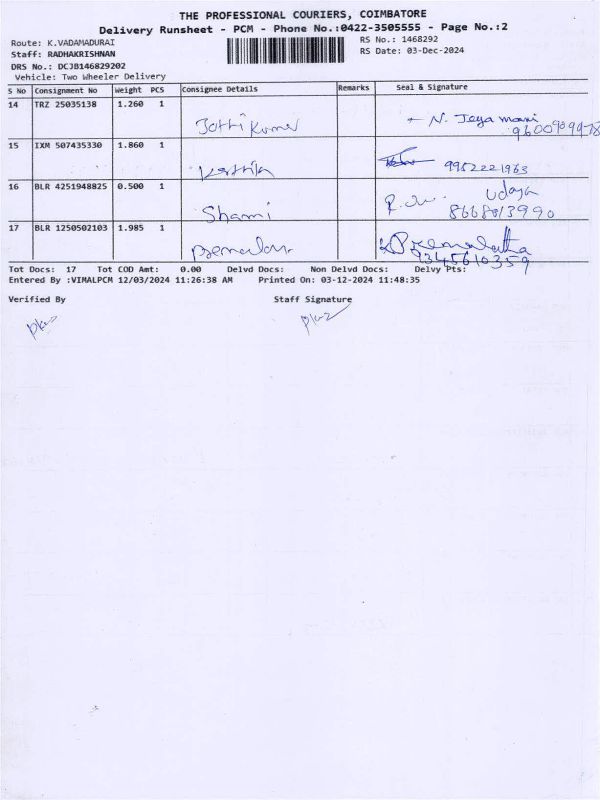 THE PROFESSIONAL COURIERS, COIMBATORE
Delivery Runsheet - PCM - Phone No.:0422-3505555 - Page No.:2
Route: K.VADAMADURAI
RS No.: 1468292
Staff: RADHAKRISHNAN
RS Date: 03-Dec-2024
DRS No.: DCJB146829202
Vehicle: Two Wheeler Delivery
S No Consignment No Weight PCS Consignee Details Remarks Seal & Signature
14 TRZ 25035138 1.260 1
Jothi Kumar N. Jeya mani
9600909978
15 IXM 507435330 1.860 1
Karthik 9952221963
16 BLR 4251948825 0.500 1
Shami Udaya
8668013990
17 BLR 1250502103 1.985 1
Premalatha
9345610359
Tot Docs: 17 Tot COD Amt: 0.00 Delvd Docs: Non Delvd Docs: Delvy Pts:
Entered By :VIMALPCM 12/03/2024 11:26:38 AM Printed On: 03-12-2024 11:48:35
Verified By Staff Signature